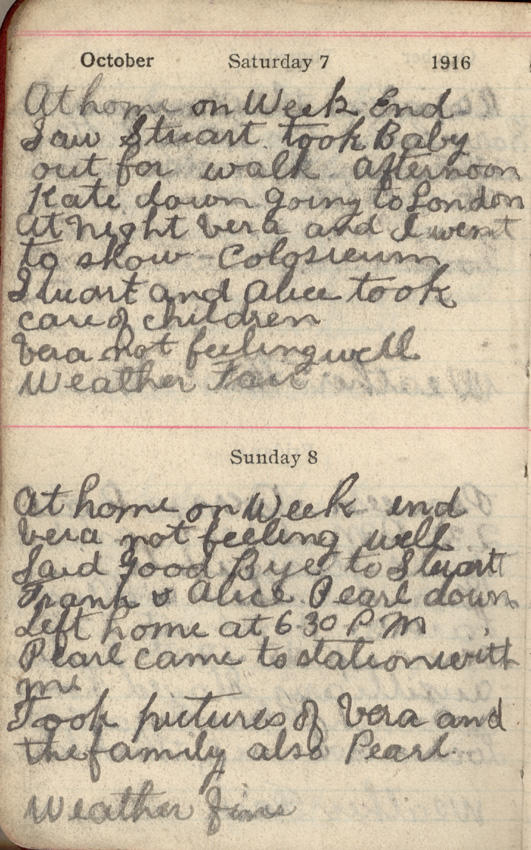 October Saturday 7 1916
At home on Week End
Saw Stuart took Baby
out for walk afternoon
Kate down going to London
At Night Vera and I went
to show - Colosieum
Stuart and Alice took
care of children
Vera not feeling well
Weather Fair
Sunday 8
At home on Week end
Vera not feeling well
Said Good Bye to Stuart
Frank & Alice Pearl down
Left home at 6-30 P M
Pearl came to station with
me
Took pictures of Vera and
the family also Pearl.
Weather fine